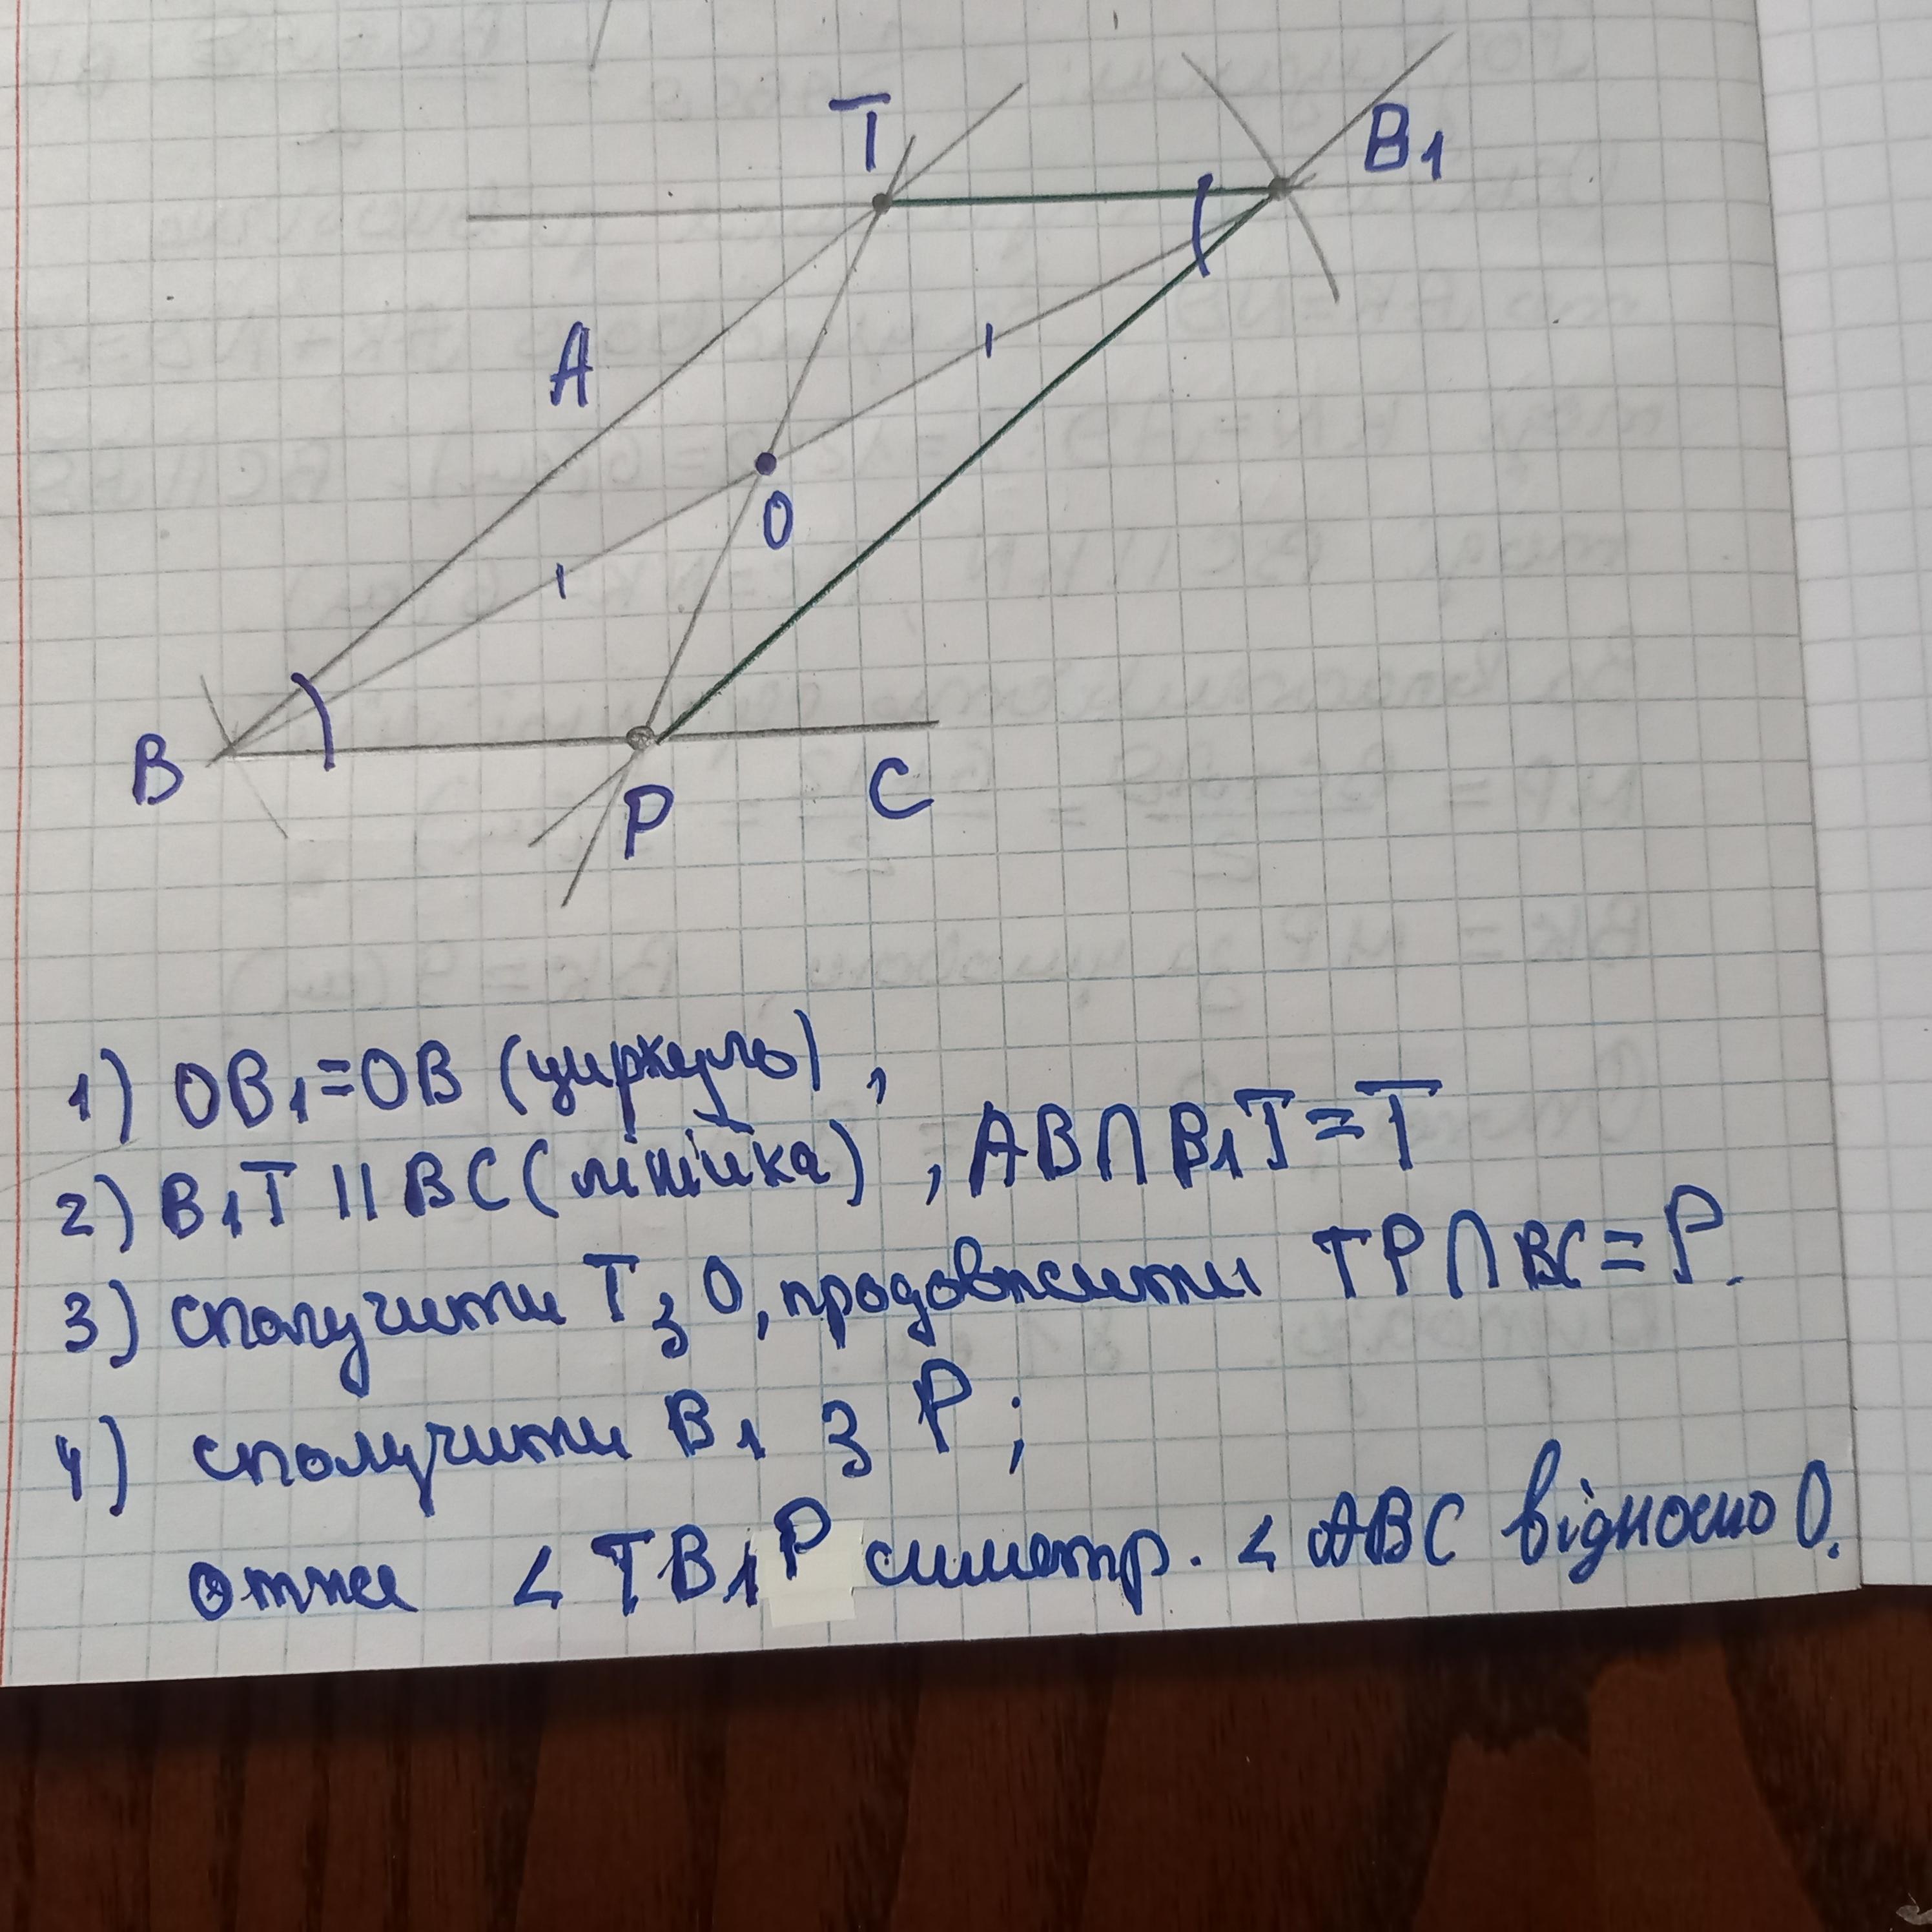 T
B₁
A
O
B
P
C
1) OB₁=OB (циркуль),
2) B₁T || BC (лінійка), AB∩B₁T=T
3) сполучити T з O, продовжити TP∩BC=P.
4) сполучити B₁ з P;
отже ∠TB₁P симетр. ∠ABC відносно O.